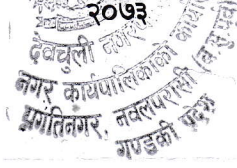 २०७३
देवचुली नगर
नगर कार्यपालिकाको कार्यालय
प्रगतिनगर, नवलपरासी
गण्डकी प्रदेश